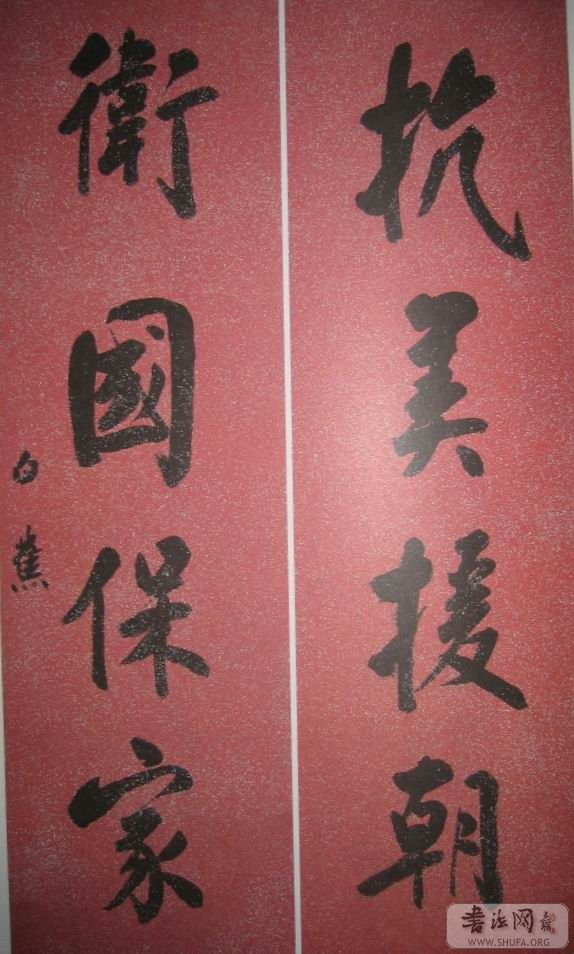 抗美援朝
衛國保家
白蕉
书法网
WWW.SHUFA.ORG